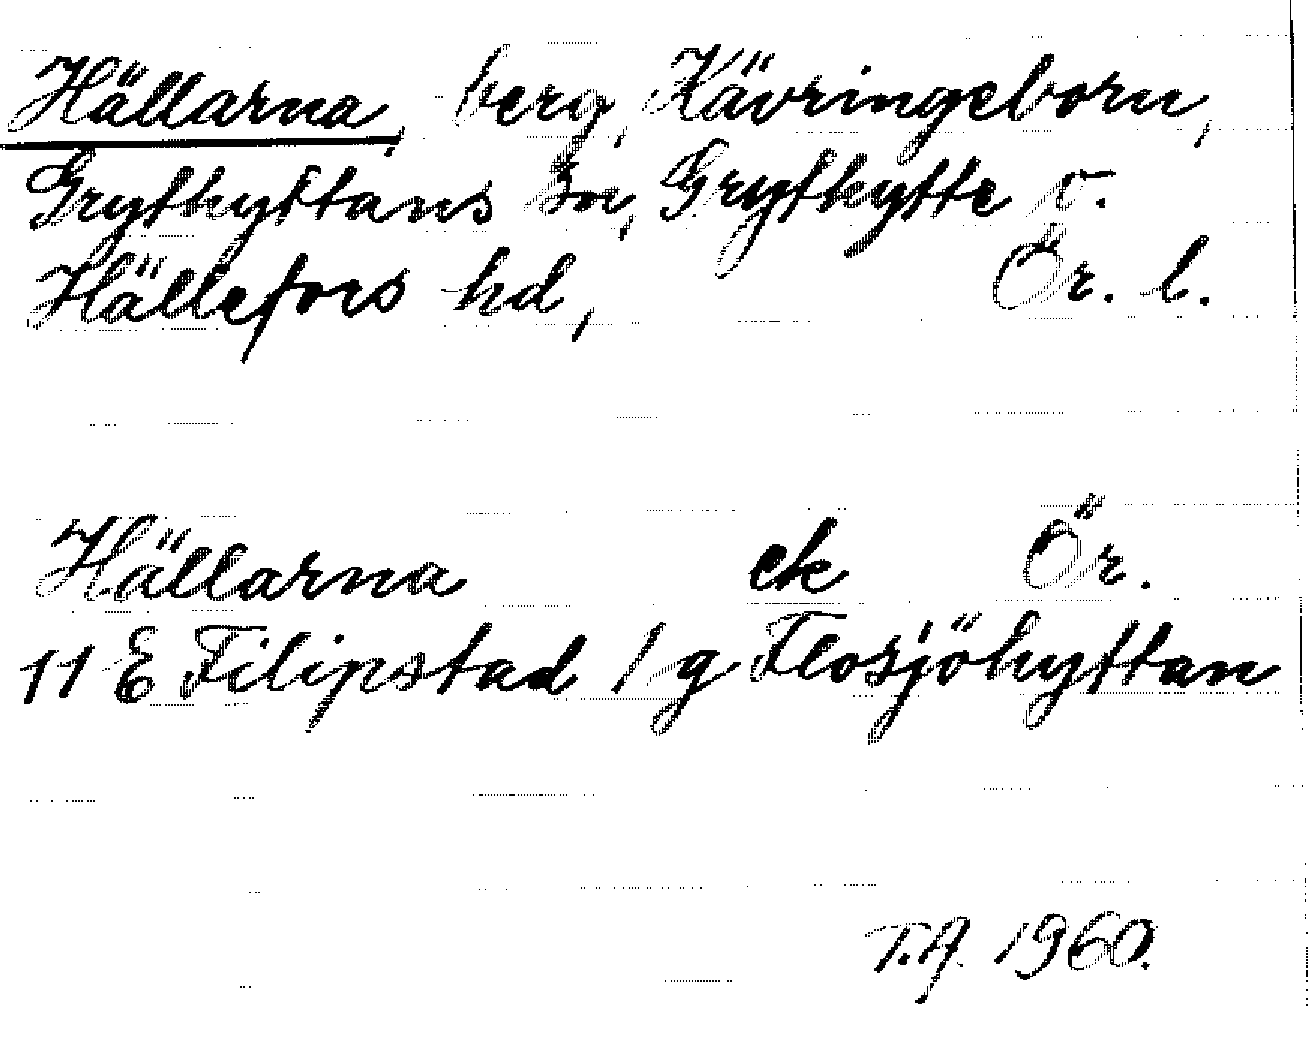 Hällarna, berg, Kävringeborn,
Grythyttans sn, Grythytte o.
Hällefors hd, Ör. l.
Hällarna ek Ör.
11 E Filipstad 1 g Flosjöhyttan
T.A. 1960.